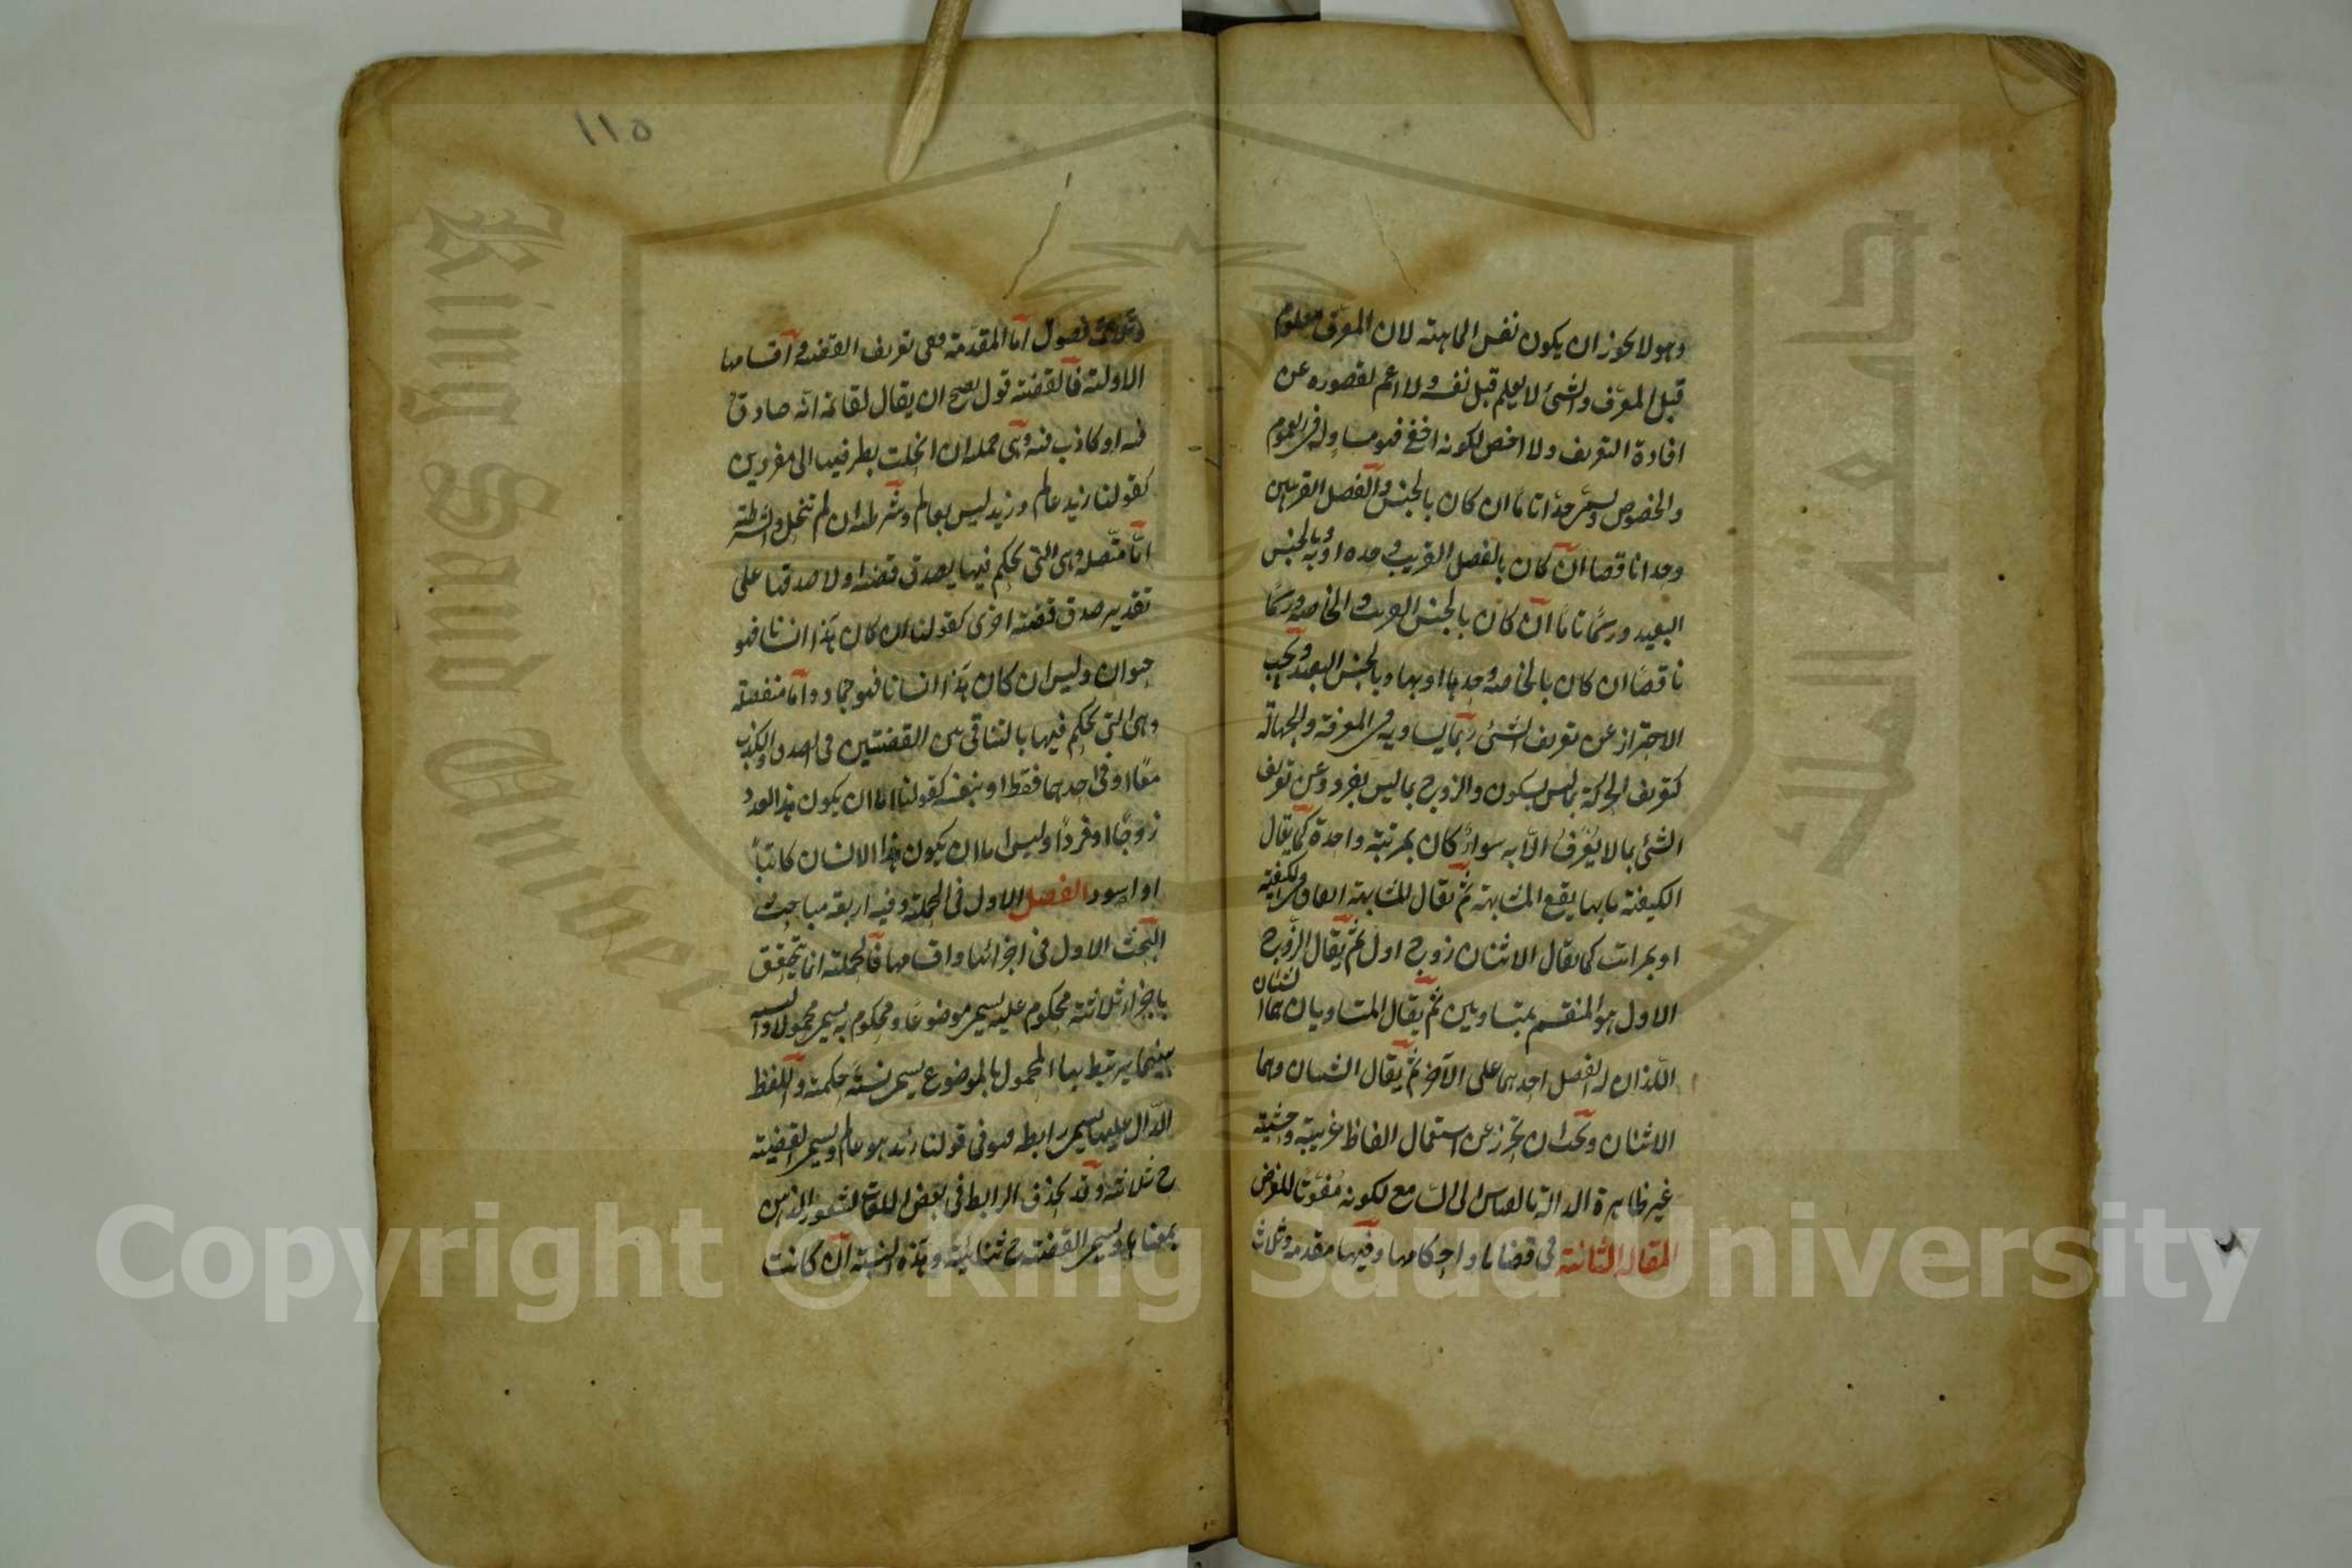 وهو لا يجوز ان يكون نفس الماهية لان المعرف معلوم
قبل المعرف والشئ لا يعلم قبل نفسه ولا اعم لقصوره عن
افادة التعريف ولا اخص لكونه اخفى فهو مساو له فى العموم
والخصوص ويسمى حدا تاما ان كان بالجنس والفصل القريبين
وحدا ناقصا ان كان بالفصل القريب وحده او به وبالجنس
البعيد ورسما تاما ان كان بالجنس القريب والخاصة ورسما
ناقصا ان كان بالخاصة وحدها او بها وبالجنس البعيد ويجب
الاحتراز عن تعريف الشئ بما يساويه فى المعرفة والجهالة
كتعريف الحركة بما ليس بسكون والزوج بما ليس بفرد وعن تعريف
الشئ بما لا يعرف الا به سواء كان بمرتبة واحدة كما يقال
الكيفية ما بها يقع المشابهة ثم يقال المشابهة اتفاق فى الكيفية
او بمراتب كما يقال الاثنان زوج اول ثم يقال الزوج
الاول هو المنقسم بمتساويين ثم يقال المتساويان هما الشيئان
اللذان لا يفضل احدهما على الآخر ثم يقال الشيئان وهما
الاثنان ويجب ان يحترز عن استعمال الفاظ غريبة وحشية
غير ظاهرة الدالة بالقياس الى السامع لكونه مفوتا للغرض
المقالة الثانية فى قضايا واحكامها وفيها مقدمة وثلاث
وثلاثة فصول اما المقدمة ففى تعريف القضية واقسامها
الاولية فالقضية قول يصح ان يقال لقائله انه صادق
فيه او كاذب فيه وهى حملية ان انحلت بطرفيها الى مفردين
كقولنا زيد عالم وزيد ليس بعالم وشرطية ان لم تنحل والشرطية
اما متصلة وهى التى يحكم فيها بصدق قضية او لا صدقها على
تقدير صدق قضية اخرى كقولنا ان كان هذا انسانا فهو
حيوان وليس ان كان هذا انسانا فهو جماد واما منفصلة
وهى التى يحكم فيها بالتنافى بين القضيتين فى الصدق والكذب
معا او فى احدهما فقط او بنفيه كقولنا اما ان يكون هذا العدد
زوجا او فردا وليس اما ان يكون هذا الانسان كاتبا
او اسود الفصل الاول فى الحملية وفيه اربعة مباحث
البحث الاول فى اجزائها واقسامها فالحملية انما تتحقق
باجزاء ثلاثة محكوم عليه يسمى موضوعا ومحكوم به يسمى محمولا ونسبة
بينهما يرتبط بها المحمول بالموضوع يسمى نسبة حكمية واللفظ
الدال عليها يسمى رابطة هو فى قولنا زيد هو عالم ويسمى القضية
ح ثلاثية وقد يحذف الرابط فى بعض اللغات لشعور الذهن
بمعناها ويسمى القضية ح ثنائية وهذه النسبة ان كانت
١١٥
Copyright © King Saud University
King Saud University